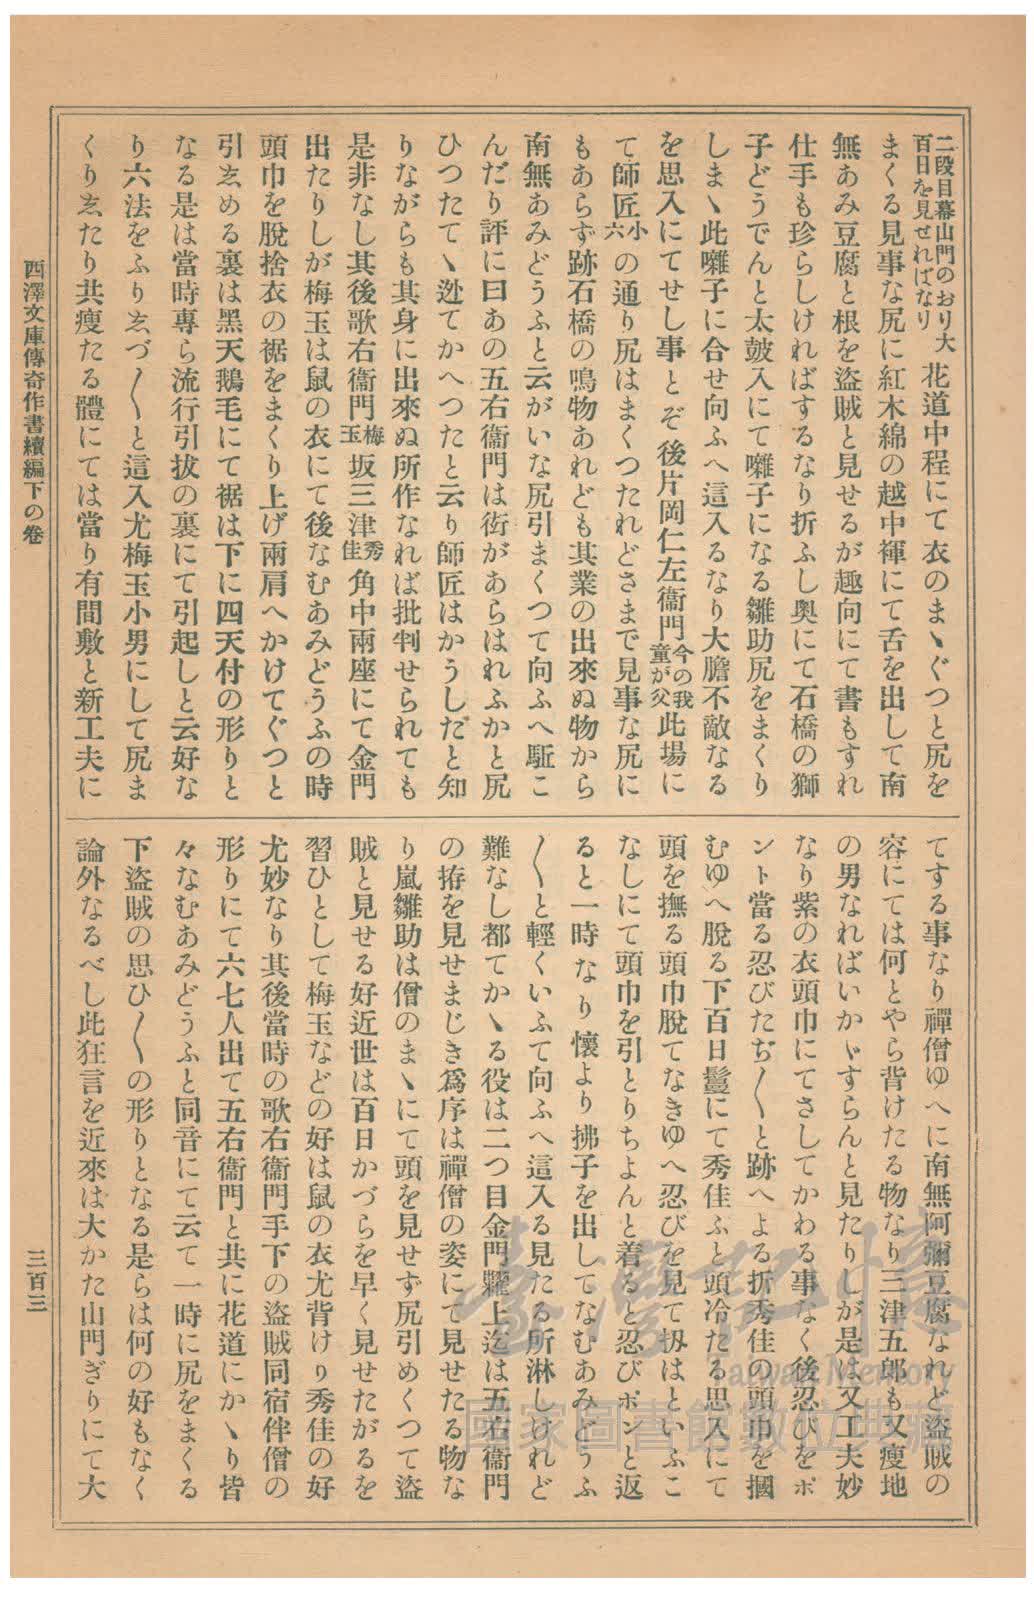 二段目幕山門のおり大
百日を見せればなり
花道中程にて衣のまゝぐつと尻を
まくる見事な尻に紅木綿の越中褌にて舌を出して南
無あみ豆腐と根を盜賊と見せるが趣向にて書もすれ
仕手も珍らしければするなり折ふし奥にて石橋の獅
子どうでんと太皷入にて囃子になる雛助尻をまくり
しまゝ此囃子に合せ向ふへ這入るなり大膽不敵なる
を思入にてせし事とぞ後片岡仁左衞門今の我童が父此場に
て師匠小六の通り尻はまくつたれどさまで見事な尻に
もあらず跡石橋の鳴物あれども其業の出來ぬ物から
南無あみどうふと云がいな尻引まくつて向ふへ駈こ
んだり評に曰あの五右衞門は衒があらはれふかと尻
ひつたてゝ迯てかへつたと云り師匠はかうしだと知
りながらも其身に出來ぬ所作なれば批判せられても
是非なし其後歌右衞門梅玉坂三津秀佳角中兩座にて金門
出たりしが梅玉は鼠の衣にて後なむあみどうふの時
頭巾を脫捨衣の裾をまくり上げ兩肩へかけてぐつと
引ゑめる裏は黑天鵝毛にて裾は下に四天付の形りと
なる是は當時專ら流行引拔の裏にて引起しと云好な
り六法をふりゑづ〱と這入尤梅玉小男にして尻ま
くりゑたり共瘦たる體にては當り有間敷と新工夫に
てする事なり禪僧ゆへに南無阿彌豆腐なれど盜賊の
容にては何とやら背けたる物なり三津五郎も又瘦地
の男なればいかゞすらんと見たりしが是は又工夫妙
なり紫の衣頭巾にてさしてかわる事なく後忍びをポ
ント當る忍びたぢ〱と跡へよる折秀佳の頭巾を摑
むゆへ脫る下百日鬘にて秀佳ふと頭冷たる思入にて
頭を撫る頭巾脫てなきゆへ忍びを見て扨はといふこ
なしにて頭巾を引とりちよんと着ると忍びポンと返
ると一時なり懷より拂子を出してなむあみどうふ
〱と輕くいふて向ふへ這入る見たる所淋しけれど
難なし都てかゝる役は二つ目金門糶上迄は五右衞門
の拵を見せまじき爲序は禪僧の姿にて見せたる物な
り嵐雛助は僧のまゝにて頭を見せず尻引めくつて盜
賊と見せる好近世は百日かづらを早く見せたがるを
習ひとして梅玉などの好は鼠の衣尤背けり秀佳の好
尤妙なり其後當時の歌右衞門手下の盜賊同宿伴僧の
形りにて六七人出て五右衞門と共に花道にかゝり皆
々なむあみどうふと同音にて云て一時に尻をまくる
下盜賊の思ひ〱の形りとなる是らは何の好もなく
論外なるべし此狂言を近來は大かた山門ぎりにて大
西澤文庫傳奇作書續編下の卷
三百三
臺灣記憶
Taiwan Memory
國家圖書館數位典藏